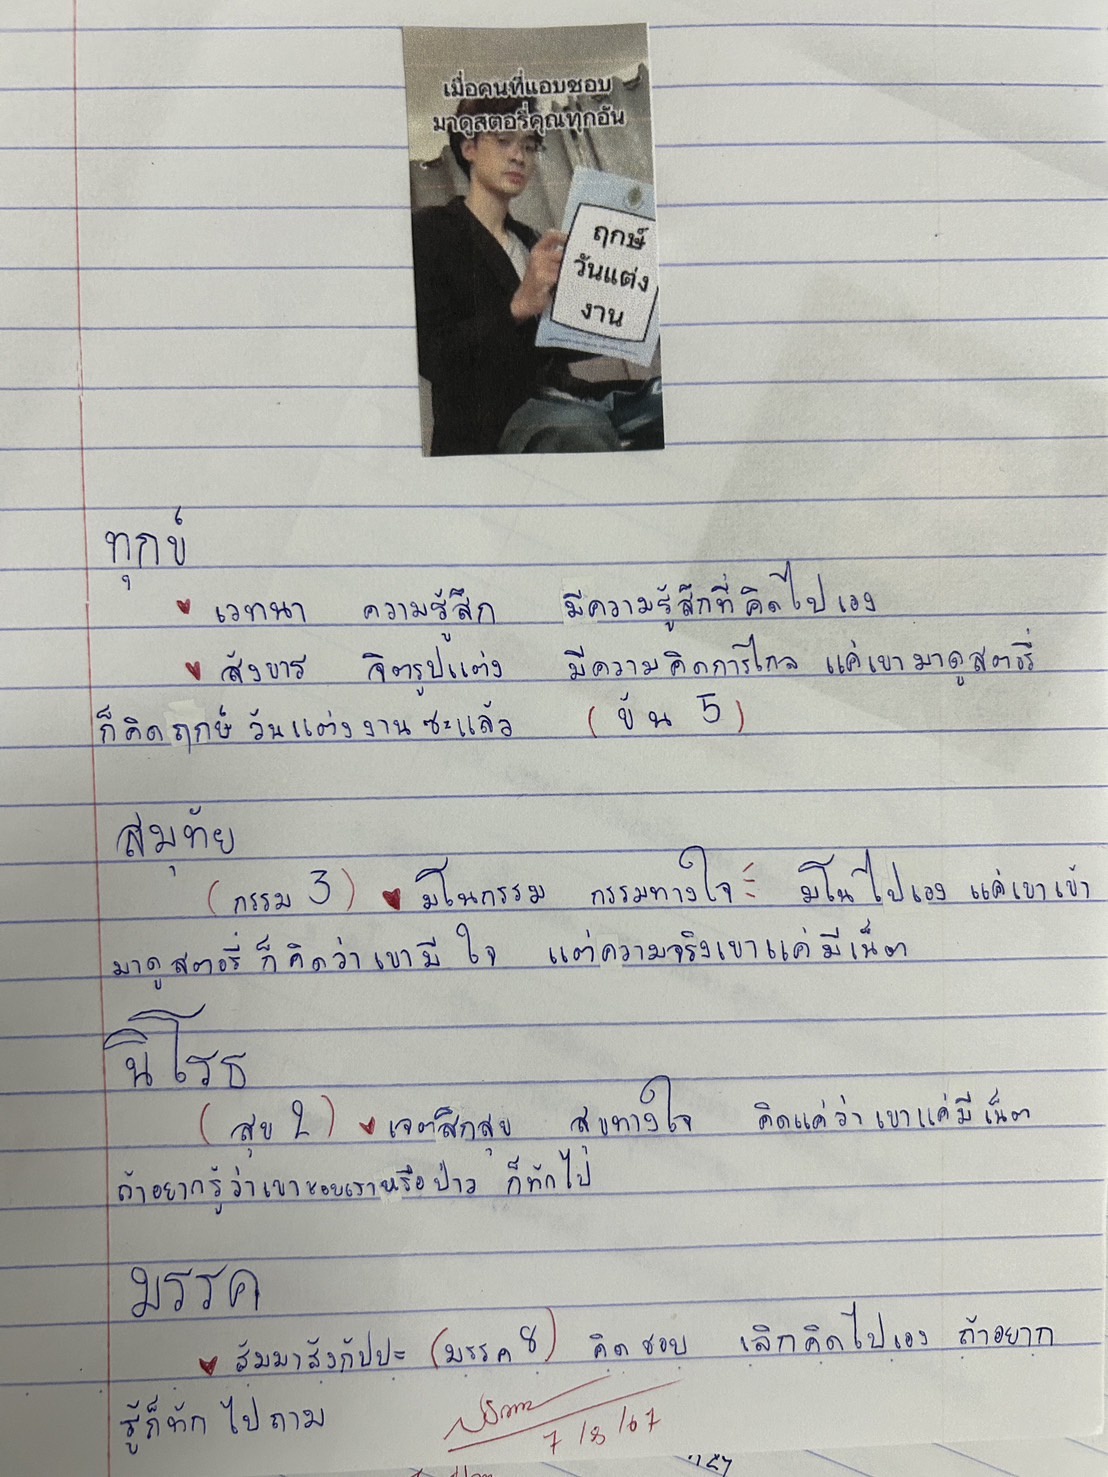 เมื่อคนที่แอบชอบ
มาดูสตอรี่คุณทุกอัน
ฤกษ์
วันแต่ง
งาน
ทุกข์
เวทนา ความรู้สึก มีความรู้สึกที่คิดไปเอง
สังขาร จิตรูปแต่ง มีความคิดการไกล แค่เขามาดูสตอรี่
ก็คิดฤกษ์วันแต่งงานซะแล้ว (ขัน 5)
สมุทัย
(กรรม 3) มโนกรรม กรรมทางใจ มโนไปเอง แค่เขาเข้า
มาดูสตอรี่ก็คิดว่าเขามีใจ แต่ความจริงเขาแค่มีเน็ต
นิโรธ
(สุข 2) เจตสิกสุข สุขทางใจ คิดแค่ว่าเขาแค่มีเน็ต
ถ้าอยากรู้ว่าเขาชอบเราหรือป่าว ก็ทักไป
มรรค
สัมมาสังกัปปะ (มรรค 8) คิดชอบ เลิกคิดไปเอง ถ้าอยาก
รู้ก็ทักไปถาม
7/8/67